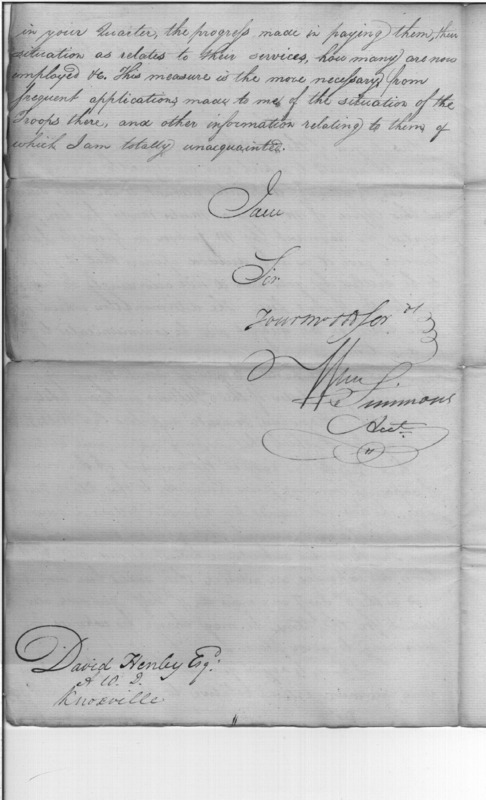 in your Quarter, the progress made in paying them, their
situation as relates to their services, how many are now
employed &c. This measure is the more necessary from
frequent applications made to me, of the situation of the
Troops there, and other information relating to them, of
which I am totally unacquainted.
I am
Sir
Your Mo Ob Servt
Wm Simmons
Acct
David Henley Esqr.
A W D
Knoxville